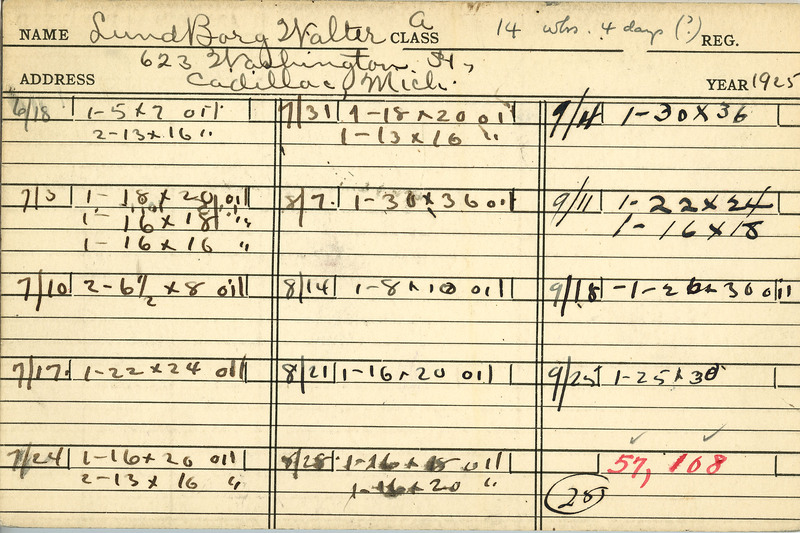 NAME LundBorg Walter CLASS A 14 wks. 4 days (?) REG.
623 Washington St,
ADDRESS Cadillac, Mich. YEAR 1925
6/18 1-5x7 oil
2-13x16 "
7/3 1-18x20 oil
1-16x18 "
1-16x16 "
7/10 2-6½x8 oil
7/17 1-22x24 oil
7/24 1-16x20 oil
2-13x16 "
7/31 1-18x20 oil
1-13x16 "
8/7 1-30x36 oil
8/14 1-8x10 oil
8/21 1-16x20 oil
8/28 1-16x18 oil
1-16x20 "
9/4 1-30x36
9/11 1-22x24
1-16x18
9/18 -1-26x30 oil
9/25 1-25x30
57, 108